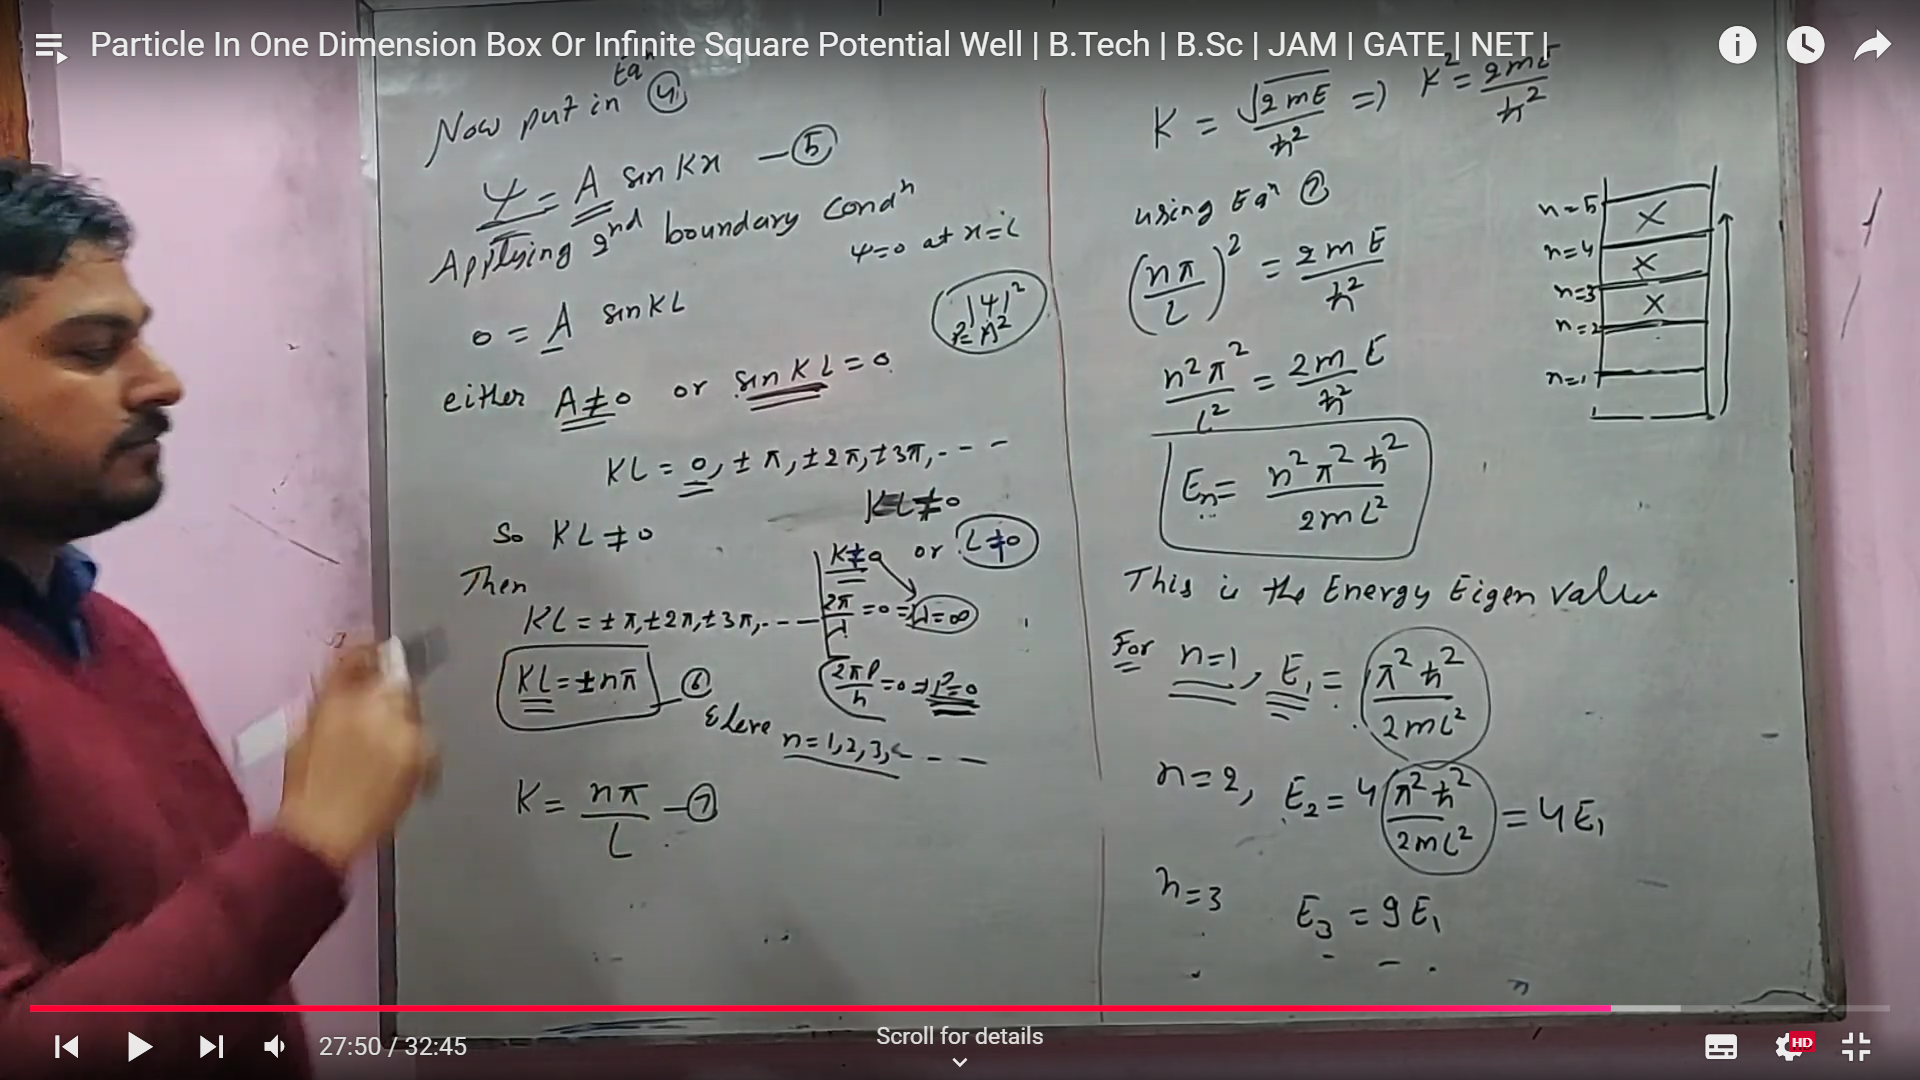 Particle In One Dimension Box Or Infinite Square Potential Well | B.Tech | B.Sc | JAM | GATE | NET |
Now put in Eqⁿ ④
Ψ = A sin Kx — ⑤
Applying 2nd boundary Condⁿ
ψ=0 at x=L
0 = A sin KL
|ψ|²
P= A²
either A≠0 or sin KL = 0
KL = 0, ± π, ± 2π, ± 3π, - - -
KL ≠ 0
So KL ≠ 0
K≠0 or L≠0
Then
KL = ± π, ± 2π, ± 3π, - - -
2π/λ = 0 ⇒ λ=∞
KL = ± nπ — ⑥
2πP/h = 0 ⇒ P=0
n = 1, 2, 3, - - -
K = nπ/L — ⑦
K = √2mE/ħ² ⇒ K² = 2mE/ħ²
using Eqⁿ ⑦
(nπ/L)² = 2mE/ħ²
n²π²/L² = 2mE/ħ²
Eₙ = n²π²ħ²/2mL²
This is the Energy Eigen value
For n=1, E₁ = π²ħ²/2mL²
n=2, E₂ = 4 π²ħ²/2mL² = 4E₁
n=3 E₃ = 9E₁
n=5 X
n=4 X
n=3 X
n=2
n=1
27:50 / 32:45
Scroll for details
HD